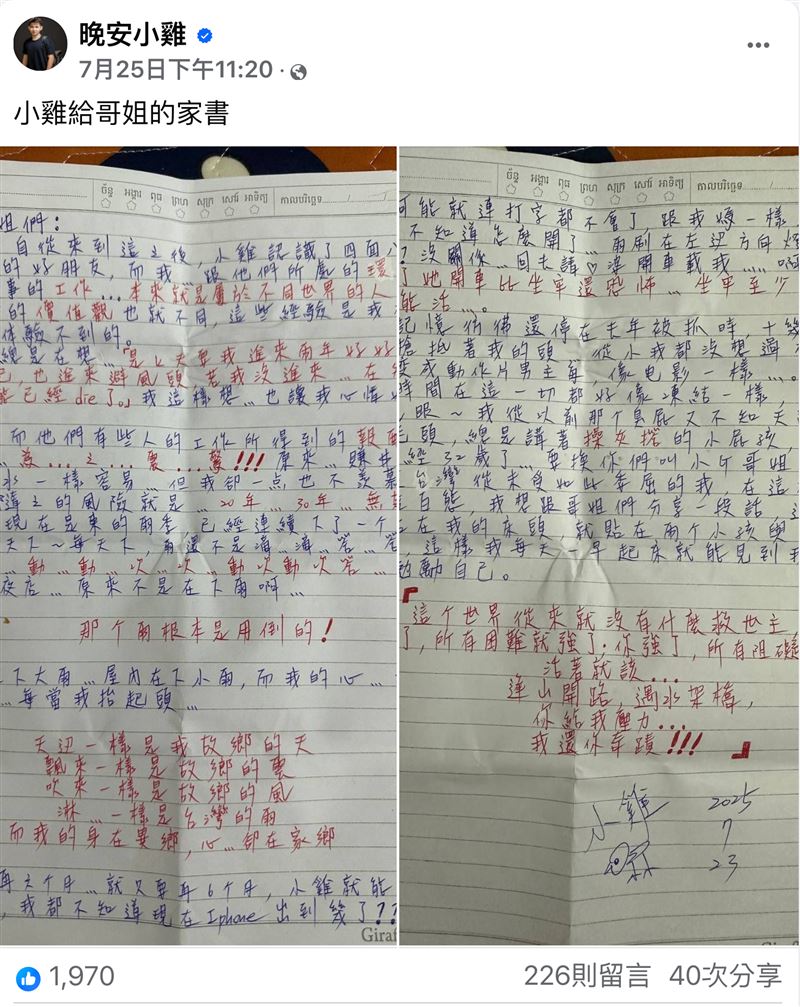 晚安小雞
7月25日下午11:20
小雞給哥姐的家書
ច័ន្ទ អង្គារ ពុធ ព្រហ សុក្រ សៅរ៍ អាទិត្យ កាលបរិច្ឆេទ
姐們：
自從來到這之後，小雞認識了四面八
的好朋友，而我...跟他們所處的環
事的工作...本來就是屬於不同世界的人
的價值觀也就不同，這些經驗是我
体驗不到的。
總是在想...是上天要我進來兩年好好
己，也進來避風頭 若我沒進來...在
能已經die了。我這樣想...也讓我心情
而他們有些人的工作所得到的報酬
為...之...裏...驚!!! 原來...賺
水一樣容易...但我卻一点也不羨慕
違之的風險就是...20年...30年...無
現在是柬的雨季 已經連續下了一个
天下～每天下，雨還不是滴...滴...答...答
...動...動...次...次...動次動次答...
夜店...原來不是在下雨啊...
那个雨根本是用倒的！
下大雨...屋內在下小雨，而我的心...
...每當我抬起頭...
天辺一樣是我故鄉的天
飄來一樣是故鄉的雲
吹來一樣是故鄉的風
淋...一樣是台灣的雨
而我的身在異鄉，心...卻在家鄉
再六个月...就只要再6个月，小雞就能
，我都不知道現在Iphone出到幾了??
Giraf
ច័ន្ទ អង្គារ ពុធ ព្រហ សុក្រ សៅរ៍ អាទិត្យ កាលបរិច្ឆេទ
可能就連打字都不會了 跟我媽一樣
不知道怎麼開了...雨刷在左辺方向燈
了沒關係...回去請♡准開車載我......啊
了她開車比坐牢還恐怖...坐牢至少
能活...。
記憶彷彿還停在去年被抓時，十幾
槍抵著我的頭...從小我都沒想過
或動作片男主角，像电影一樣...。
時間在這一切都好像凍結一樣，
眼～我從以前那个臭屁又不知天
毛頭，總是講著操夾搭的小屁孩，
經32歲了...要換你們叫小ケ哥姐
台灣從未受如此委屈的我，在這
百態，我想跟哥姐們分享一段話 這
在我的床頭，就貼在兩个小孩與
，這樣我每天一早起來就能見到我
勉勵自己。
「這个世界從來就沒有什麼救世主
了，所有困難就強了．你強了，所有阻礙
活著就該...
逢山開路，遇水架橋，
你給我壓力...
我還你奇蹟!!!」
小雞 2025
7
23
Giraf
1,970
226則留言 40次分享